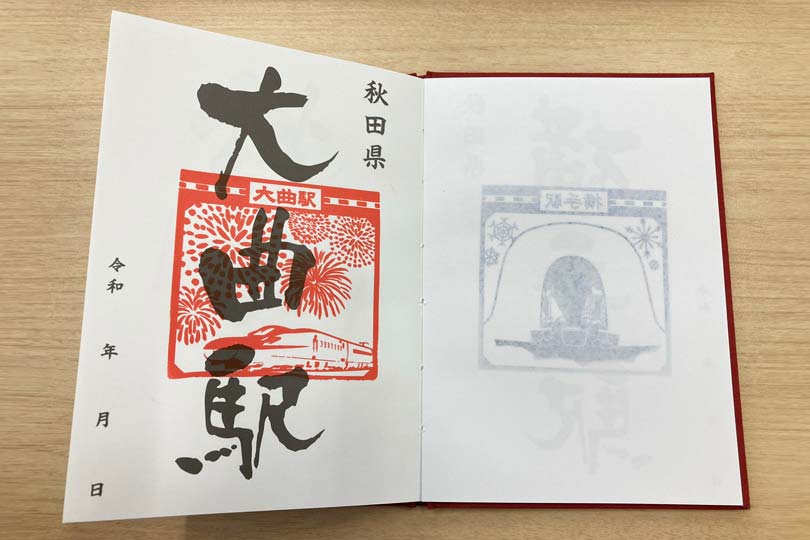 秋田県
大曲駅
大曲駅
令和 年 月 日
横手駅